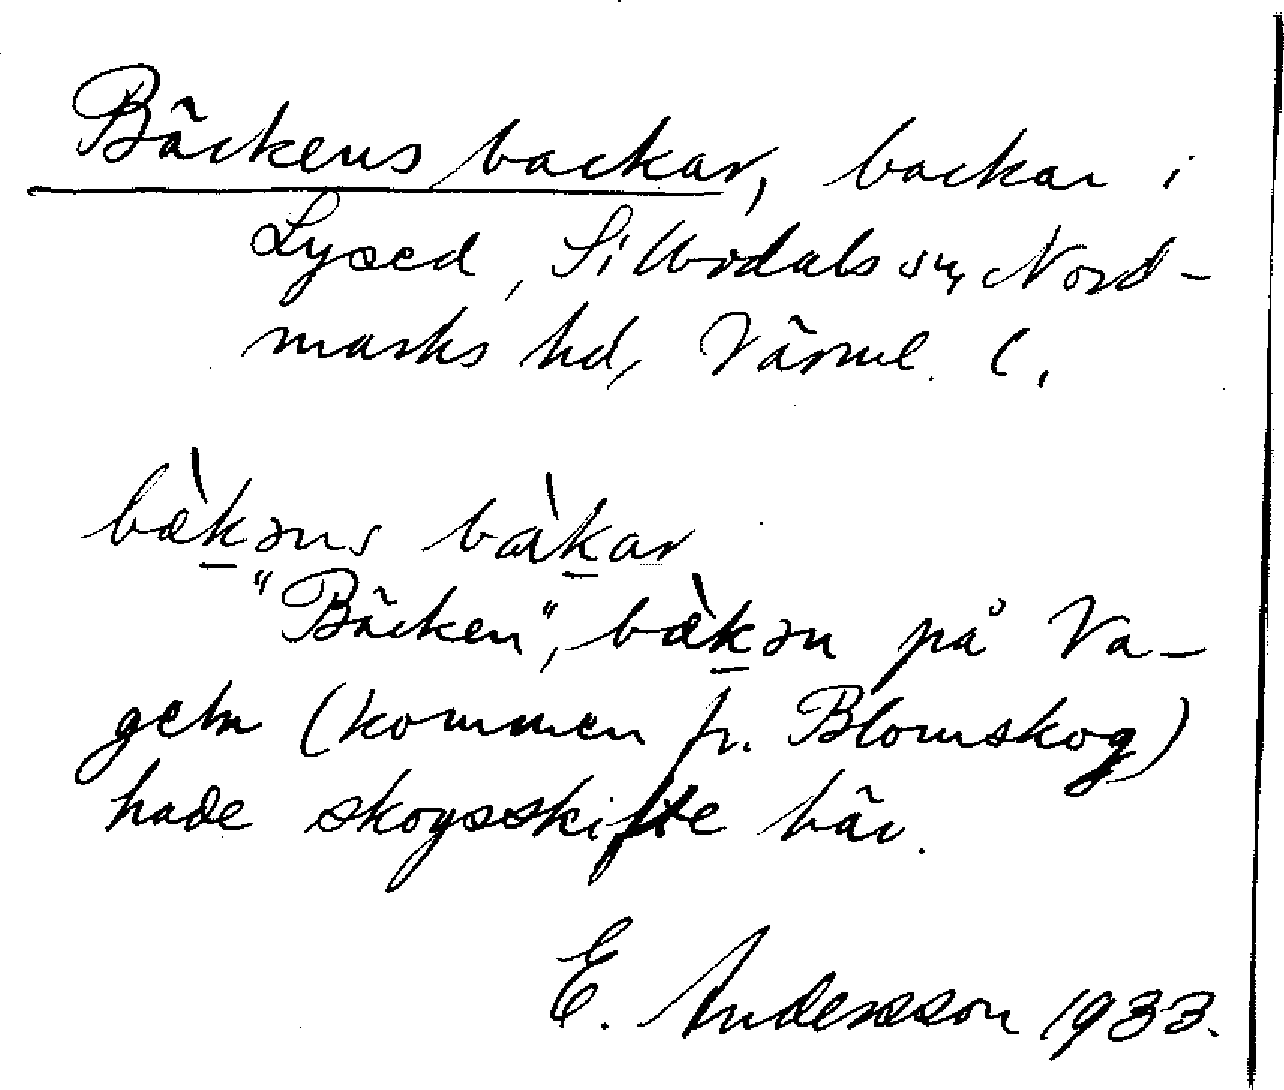 Bäckens backar, backar i
Lysed, Sillerdals sn, Nord-
marks hd, Värml. l.
bæ̀kəns bàkar
"Bäcken", bæ̀kən på Va-
geln (kommen fr. Blomskog)
hade skogsskifte här.
E. Andersson 1933.